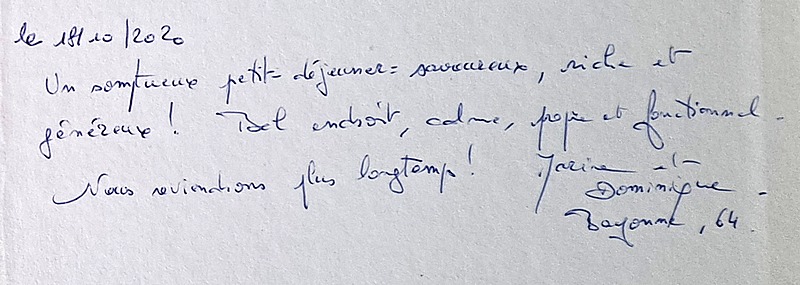 le 18/10/2020
Un somptueux petit-déjeuner : savoureux, riche et
généreux ! Bel endroit, calme, propre et fonctionnel.
Nous reviendrons plus longtemps ! et
Dominique.
Bayonne, 64.